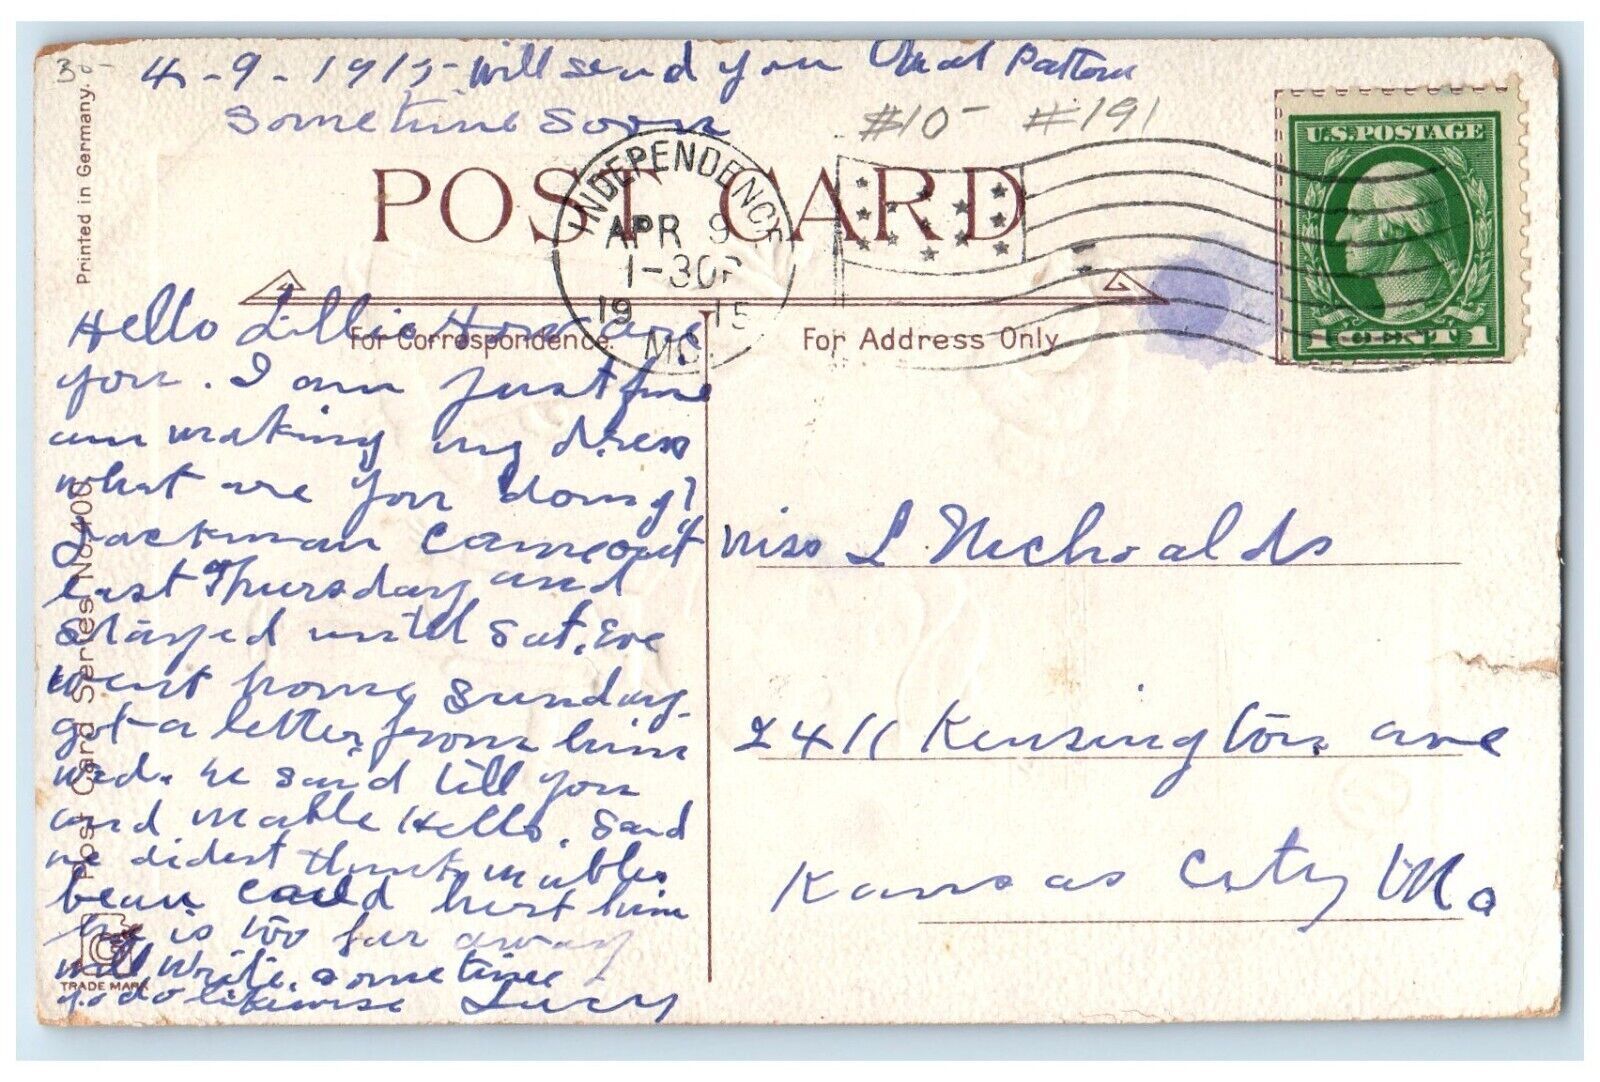 30-
4-9-1915- will send you that Pattern
sometime soon
#10- #191
POST CARD
INDEPENDENCE
APR 9
1-30P
1915
MO.
U.S. POSTAGE
1 CENT 1
Printed in Germany.
Post Card Series No. 400.
TRADE MARK
For Correspondence.
For Address Only
Hello Lillie How are
you. I am just fine
am making my dress
what are you doing?
Jackman came out
last Thursday and
stayed until Sat. Eve
went home Sunday.
got a letter from him
wed. he said tell you
and mable Hello. Said
he didest think mables
beau could hurt him
he is too far away
will write sometime
you do likewise Lucy
Miss L Nichoalds
2411 Kensington ave
Kansas City Mo